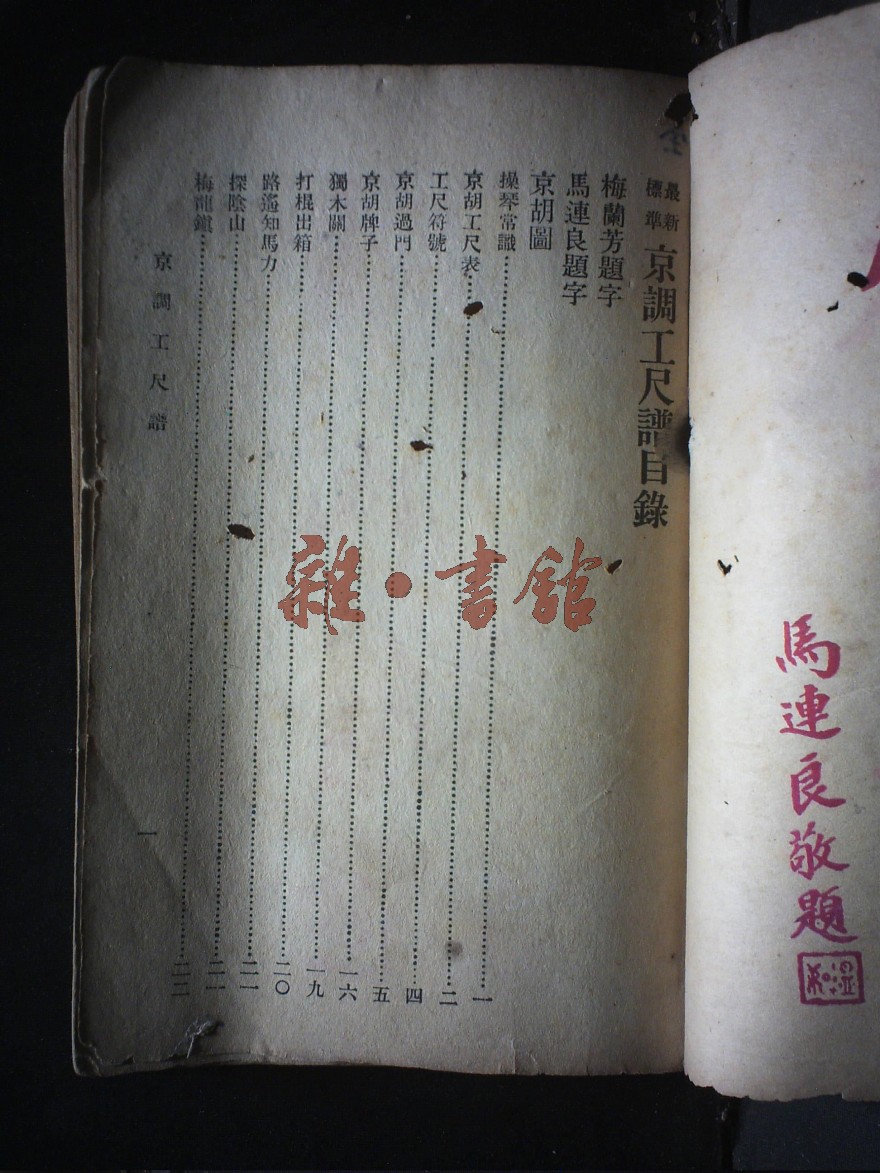 馬連良敬題
最新標準 京調工尺譜目錄
梅蘭芳題字
馬連良題字
京胡圖
操琴常識……一
京胡工尺表……二
工尺符號……四
京胡過門……五
京胡牌子……一六
獨木關……一九
打棍出箱……二〇
路遙知馬力……二一
探陰山……二一
梅龍鎮……二二
京調工尺譜
一
雜·書館